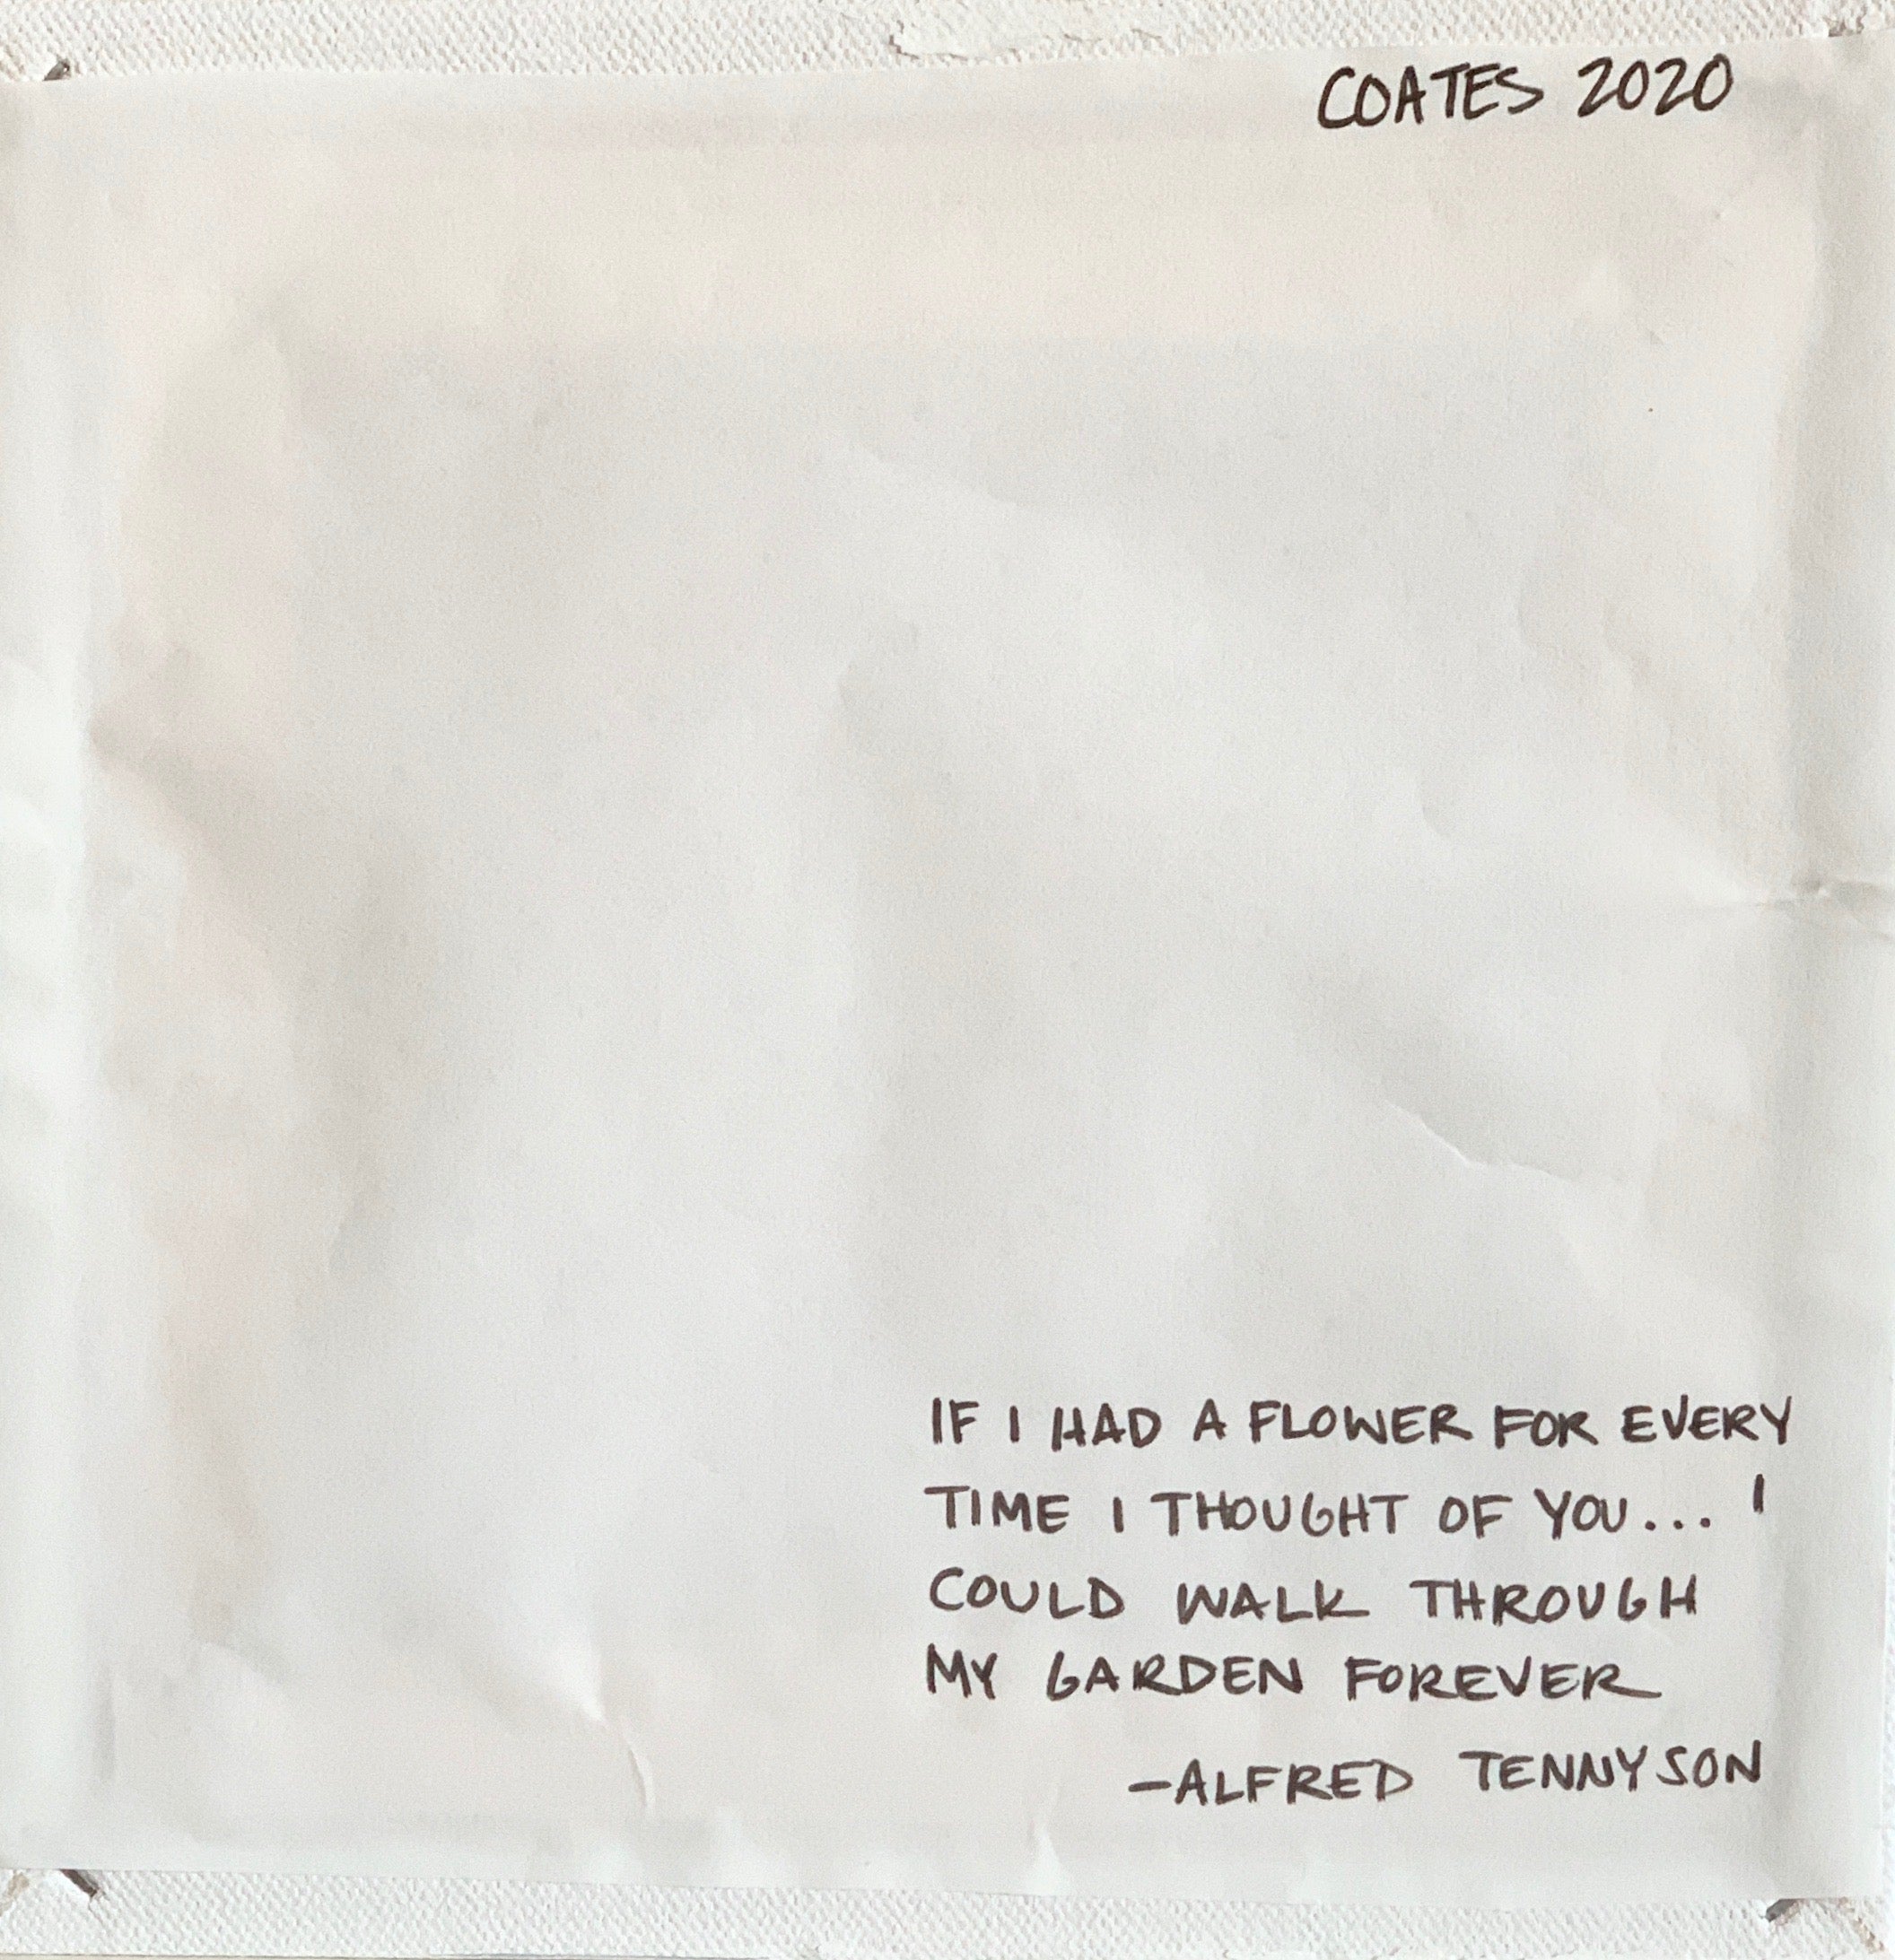 COATES 2020
IF I HAD A FLOWER FOR EVERY
TIME I THOUGHT OF YOU... I
COULD WALK THROUGH
MY GARDEN FOREVER
-ALFRED TENNYSON